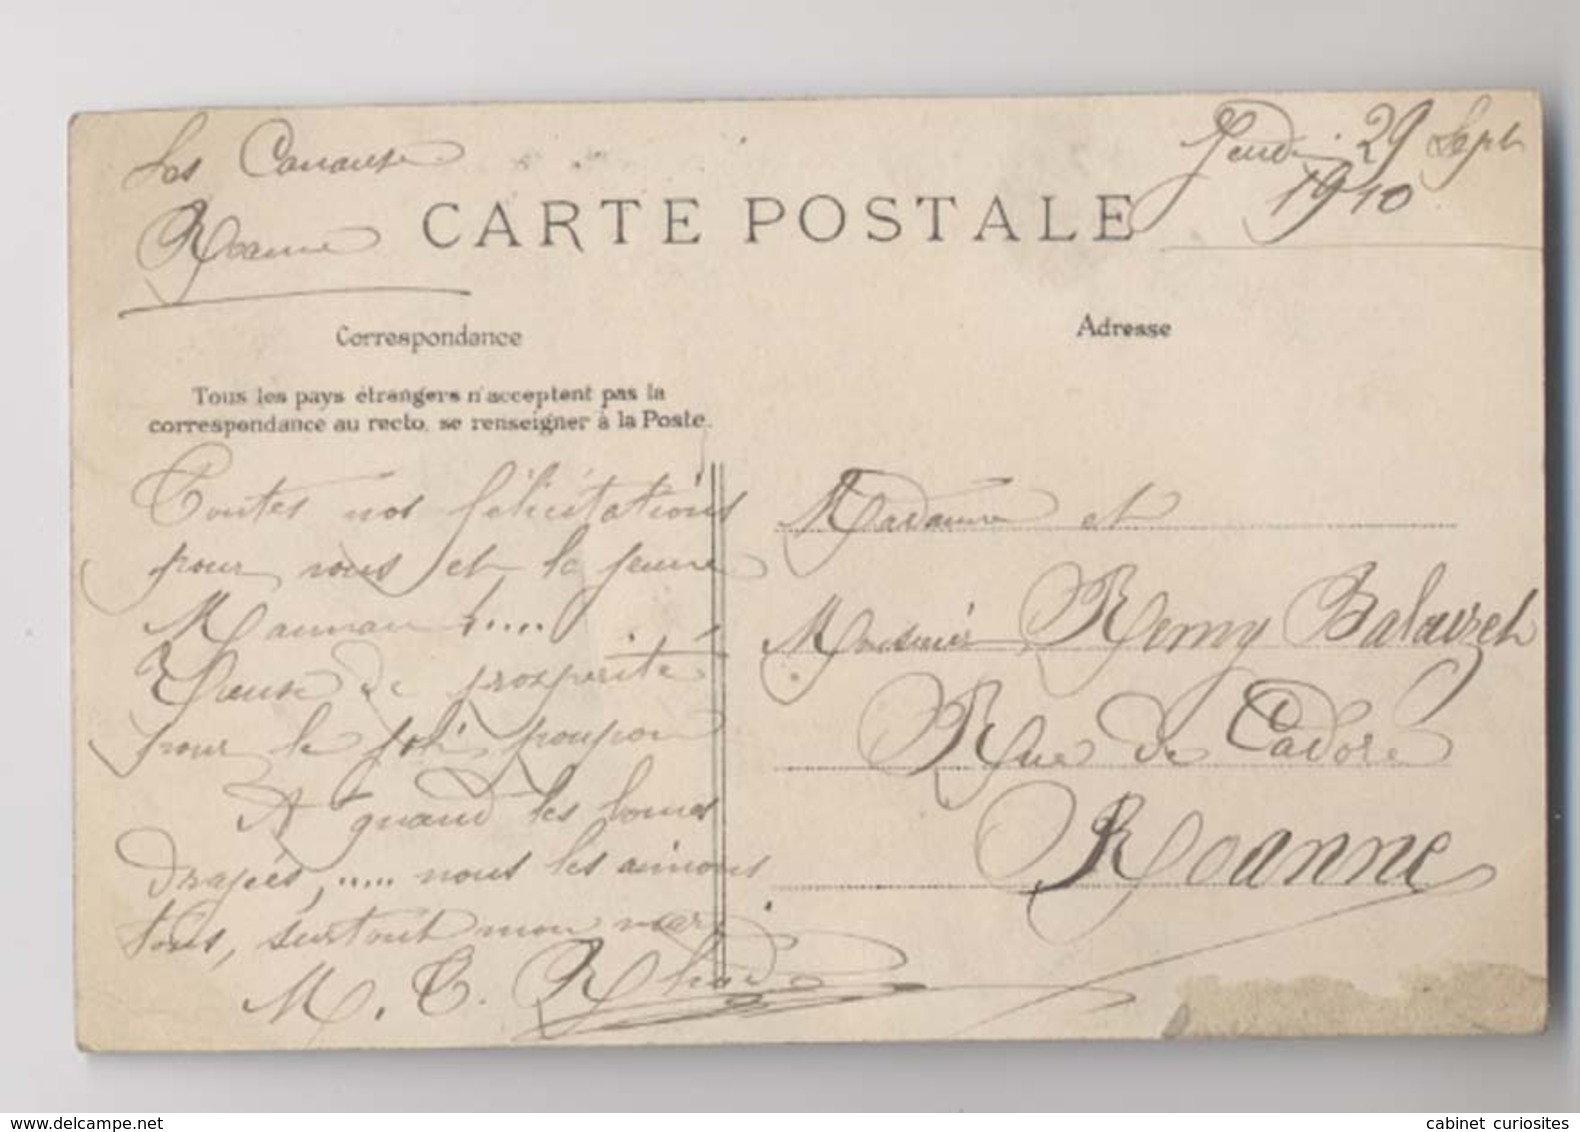 Les Canaux
Jeudi 29 Sept
1910
Roanne
CARTE POSTALE
Correspondance
Adresse
Tous les pays étrangers n'acceptent pas la
correspondance au recto, se renseigner à la Poste.
Toutes nos félicitations
pour vous et la jeune
Maman !.....
de prospérité
pour le joli poupon
A quand les bonnes
dragées, ..... nous les aimons
tous, surtout mon mari
M. C.
Madame et
Monsieur Remy Balouzet
Rue de Cadore
Roanne
delcampe.net
cabinet_curiosites